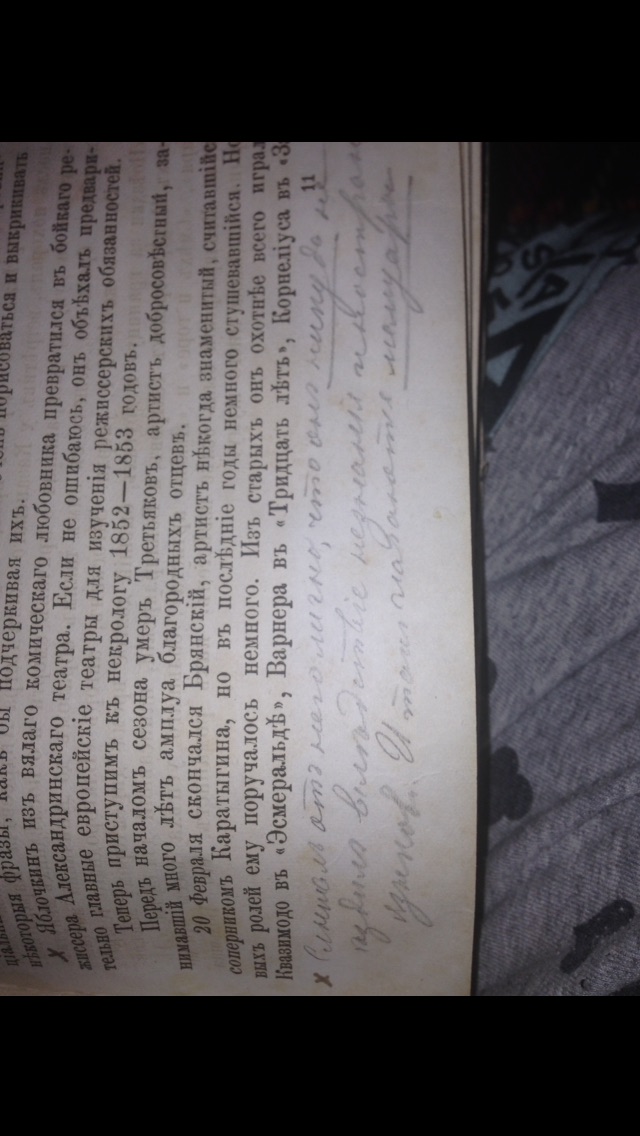 нѣкоторыя фразы, какъ бы подчеркивая ихъ.
× Яблочкинъ изъ вялаго комическаго любовника превратился въ бойкаго ре-
жиссера Александринскаго театра. Если не ошибаюсь, онъ объѣхалъ предвари-
тельно главные европейскіе театры для изученія режиссерскихъ обязанностей.
Теперь приступимъ къ некрологу 1852—1853 годовъ.
Передъ началомъ сезона умеръ Третьяковъ, артистъ добросовѣстный, за-
нимавшій много лѣтъ амплуа благородныхъ отцевъ.
20 февраля скончался Брянскій, артистъ нѣкогда знаменитый, считавшійс
соперникомъ Каратыгина, но въ послѣдніе годы немного стушевавшійся. Но
выхъ ролей ему поручалось немного. Изъ старыхъ онъ охотнѣе всего играл
Квазимодо въ «Эсмеральдѣ», Варнера въ «Тридцать лѣтъ», Корнеліуса въ «З
11
× отъ него лично, что онъ никуда не
ѣздилъ вслѣдствіе незнанія иностран
языковъ. И такъ мемуары